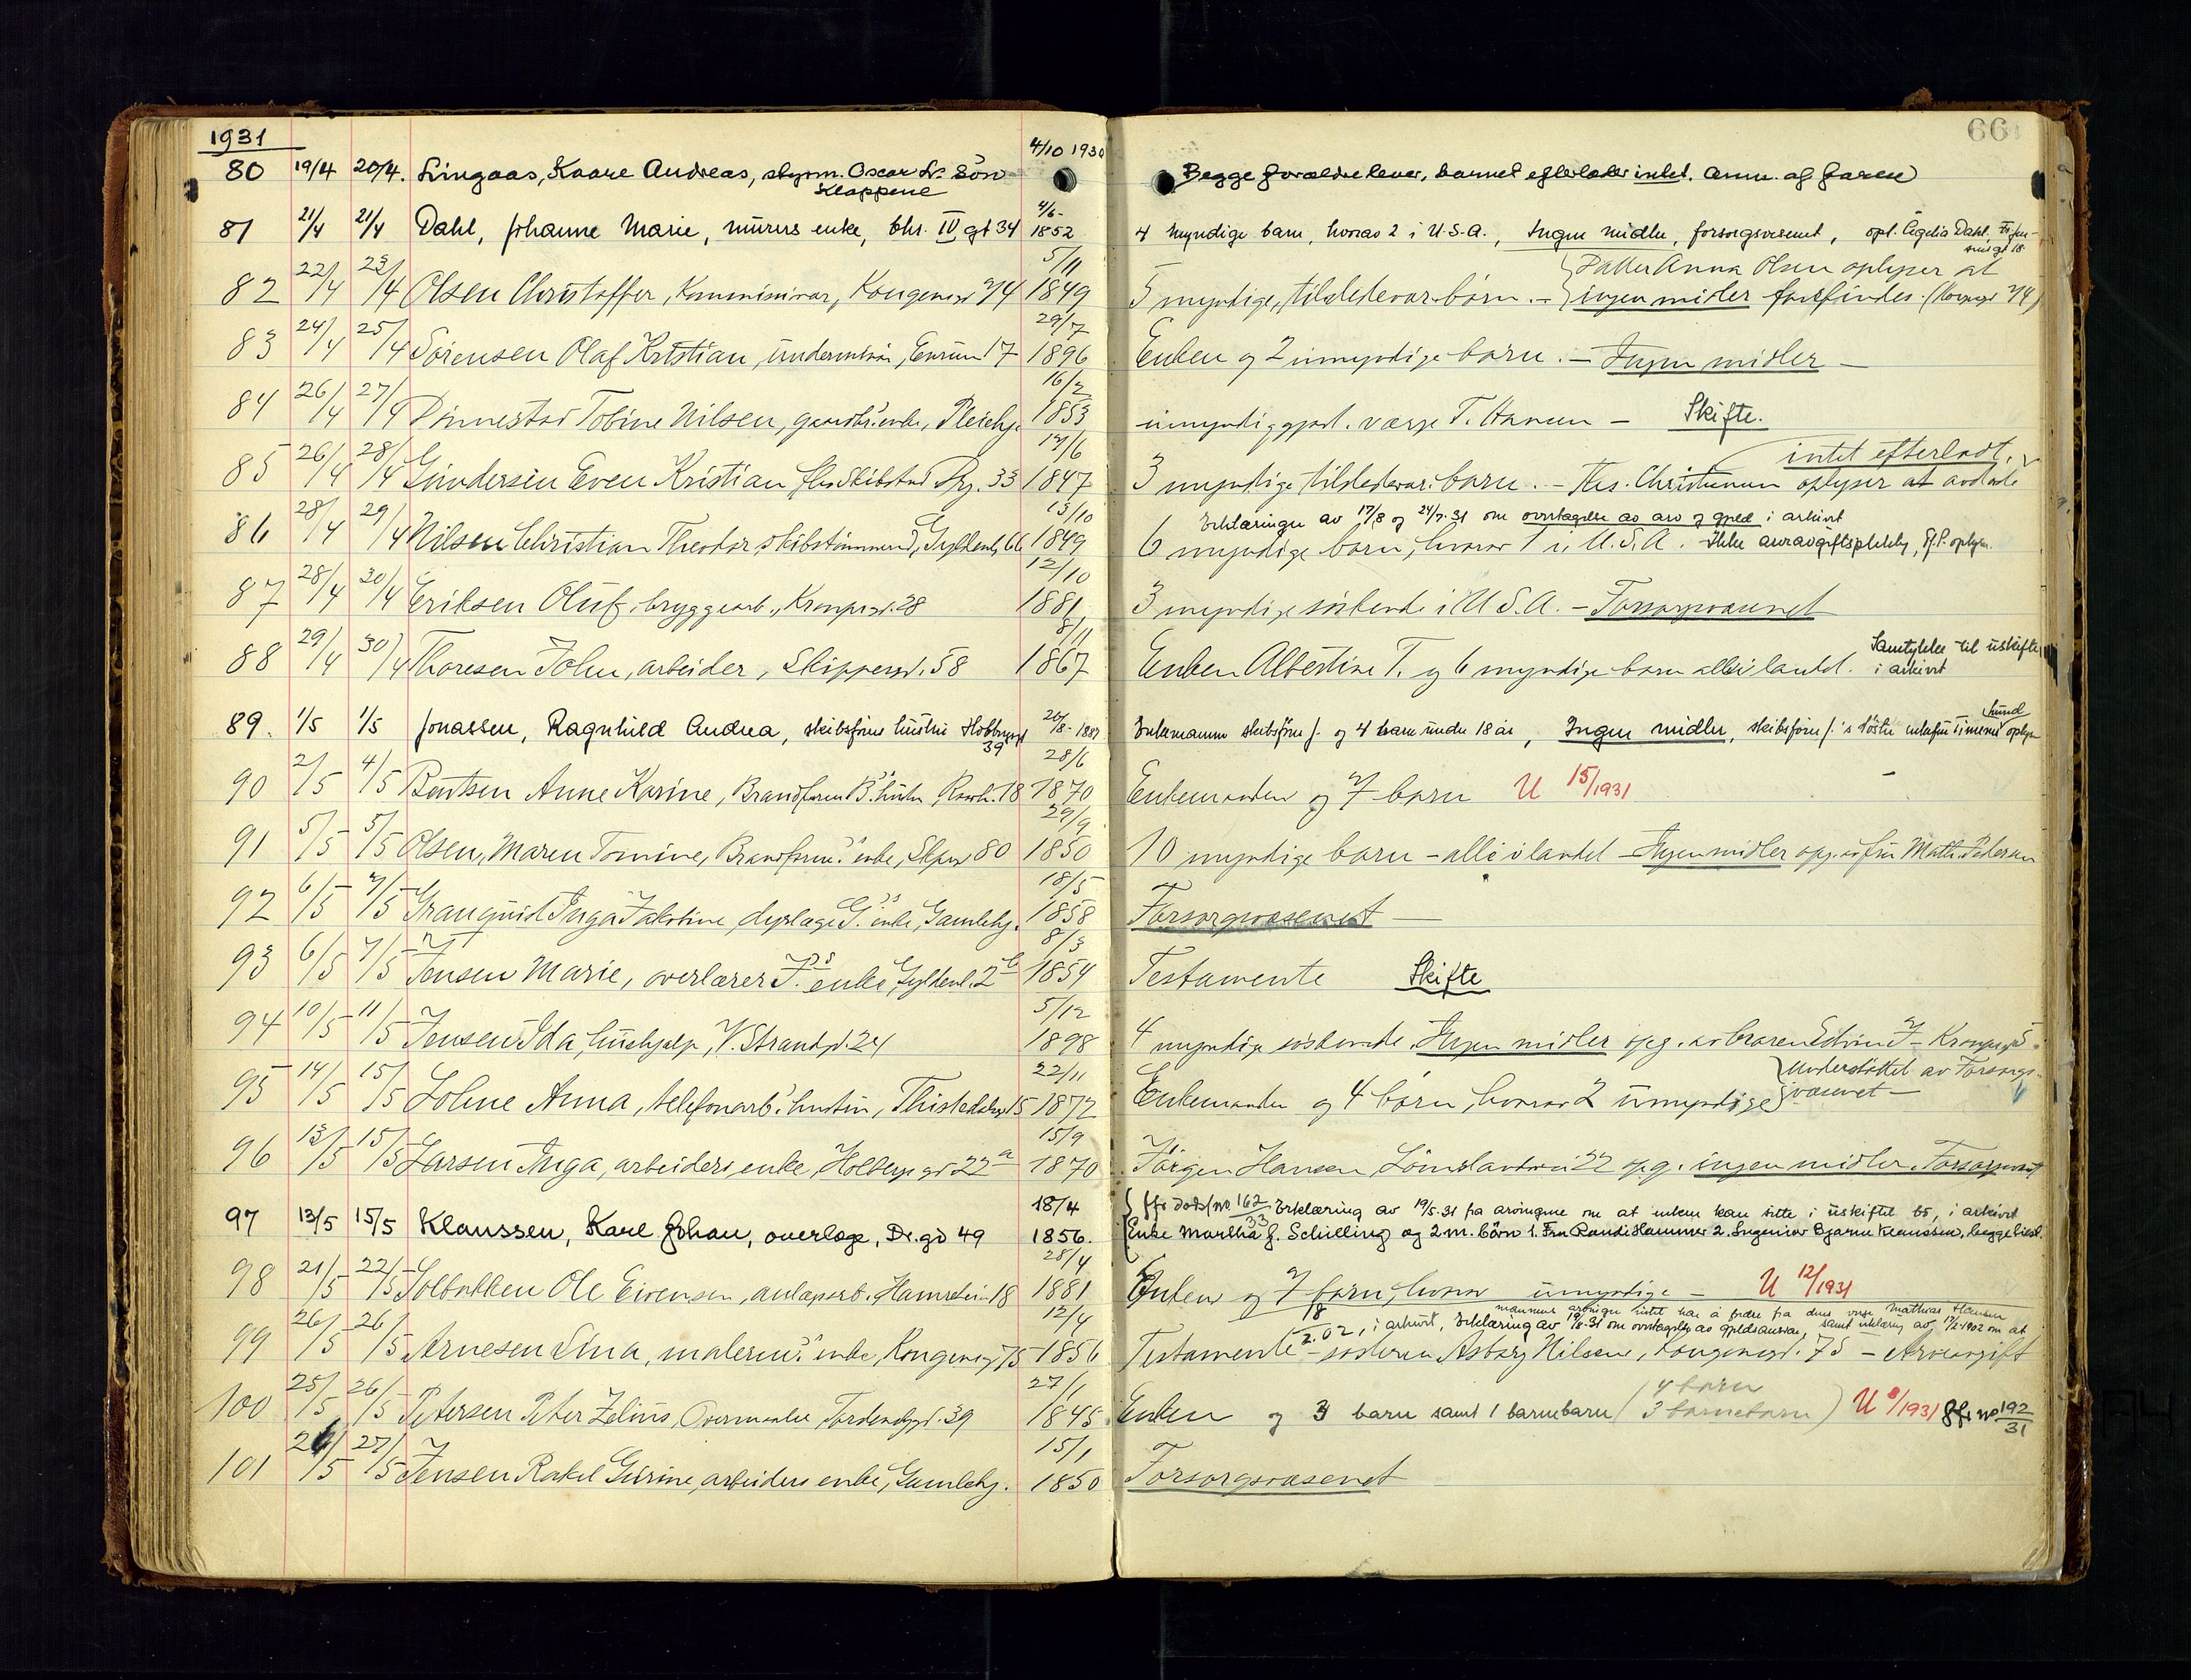 1931
66
80 19/4 20/4. Lingaas, Kaare Andreas, styrm. Oscar L's Sön 4/10 1930 Begge foreldre lever, barnet efterlater intet. Anm. af faren
Kloppene
81 21/4 21/4 Dahl, Johanne Marie, murers enke, Chr. IV gt 34 4/6- 1852 4 myndige barn, hvorav 2 i U.S.A., Ingen midler, forsorgsvesenet, opl. Dahl,
82 22/4 23/4 Olsen Christoffer, Kommisionær, Kongensgt 74 5/11 1849 5 myndige, tilstedevær. börn. - Datter Anna Olsen oplyser at
ingen midler forefindes. (Kongsgt 74)
83 24/4 25/4 Sörensen Olaf Kristian, 17 29/7 1896 Enken og 2 umyndige barn. - Ingen midler -
84 26/4 27/4 Tobine Nilsen, enke, Pleiehj. 16/2 1853 umyndiggjort. værge T. Hansen - Skifte.
85 26/4 28/4 Gundersen Even Kristian 33 1847 3 myndige tilstedevær. barn. - Ths. Christensen oplyser at avdøde
intet efterladt.
86 28/4 29/4 Nilsen Christian Theodor, skibstömmerm., Gyldenl. 66 13/10 1849 6 myndige barn, hvorav 1 i U.S.A. Ikke arveavgiftspliktig,
Erklæringer av 17/8 og 24/7.31 om overtagelse av arv og gjeld i arkivet
87 28/4 30/4 Eriksen Oluf, bryggearb., Kronprgt. 28 12/10 1881 3 myndige söskende i U.S.A. - Forsorgsvæsenet
88 29/4 30/4 Thoresen John, arbeider, Skippergt. 58 8/11 1867 Enken Albertine T. og 6 myndige barn alle i landet. Samtykke til uskifte
i arkivet
89. 1/5 1/5 Jonassen, Ragnhild Andrea, skibsförers hustru Holbergsgt 39 26/8-1887 Enkemann skibsförer J. og 4 barn under 18 år, Ingen midler, skibsförer J.'s söster
90 2/5 4/5 Bentsen Anne Karine, Brandform. B's hustru, 18 28/6 1870 Enkemanden og 7 barn U 15/1931
91 5/5 5/5 Olsen, Maren Tomine, enke, Skpgt 80 29/9 1850 10 myndige barn - alle i landet - Ingen midler opg. av fru Math. Pedersen
92 6/5 7/5 Granquist Inga Jakobine, dyrlæge G's enke, Gamlehj. 18/5 1858 Forsorgsvæsenet
93 6/5 7/5 Jensen Marie, overlærer J's enke, Gyldenl. 2b 8/3 1854 Testamente Skifte
94 10/5 11/5 Jensen Ida, hushjelp, V. Strandgt. 24 5/12 1898 4 myndige söskende. Ingen midler opg. av broren Edvin J -
95 14/5 15/5 Lohne Anna, telefonarb's hustru, 15 22/11 1877 Enkemanden og 4 börn, hvorav 2 umyndige Understöttet av Forsorgs-
væsenet -
96 13/5 15/5 Larsen Inga, arbeiders enke, Holbergsgt 22a 15/9 1870 Jörgen Hansen 22 opg. ingen midler. Forsorgsvæsenet
97 13/5 15/5 Klaussen, Karl Johan, overlæge, Dr. gt 49 18/4 1856. Jfr dödsf. no 162/33 Erklæring av 19/5.31 fra arvingene om at enken kan sitte i uskiftet bo, i arkivet
Enke Martha f. Schilling og 2 m. börn 1. Fru Randi Hammer 2. Ingeniör Bjarne Klaussen, begge
98 21/5 22/5 Solbakken Ole Eivensen, anlægsarb. 18 28/4 1881 Enken og 7 barn, hvorav umyndige - U 12/1931
99 26/5 26/5 Arnesen Lina, enke, Kongensgt 75 12/4 1856 Testamente - söstren Asborg Nilsen, Kongensgt. 75 - Arveavgift
i arkivet, Erklæring av om overtagelse av gjeldsansvar, samt erklæring av 17/2-1902 om at
mannens arvinger intet har å fordre fra Mathias Hansen
100 25/5 26/5 Petersen Peter Zelius, Overmaaler, Tordenskjgt. 39 27/1 1845 Enken og 3 barn samt 1 barnebarn (4 barn 3 barnebarn) U 8/1931 jfr no 192/31
101 26/5 27/5 Jensen Rakel Gurine, arbeiders enke, Gamlehj. 15/1 1850 Forsorgsvæsenet